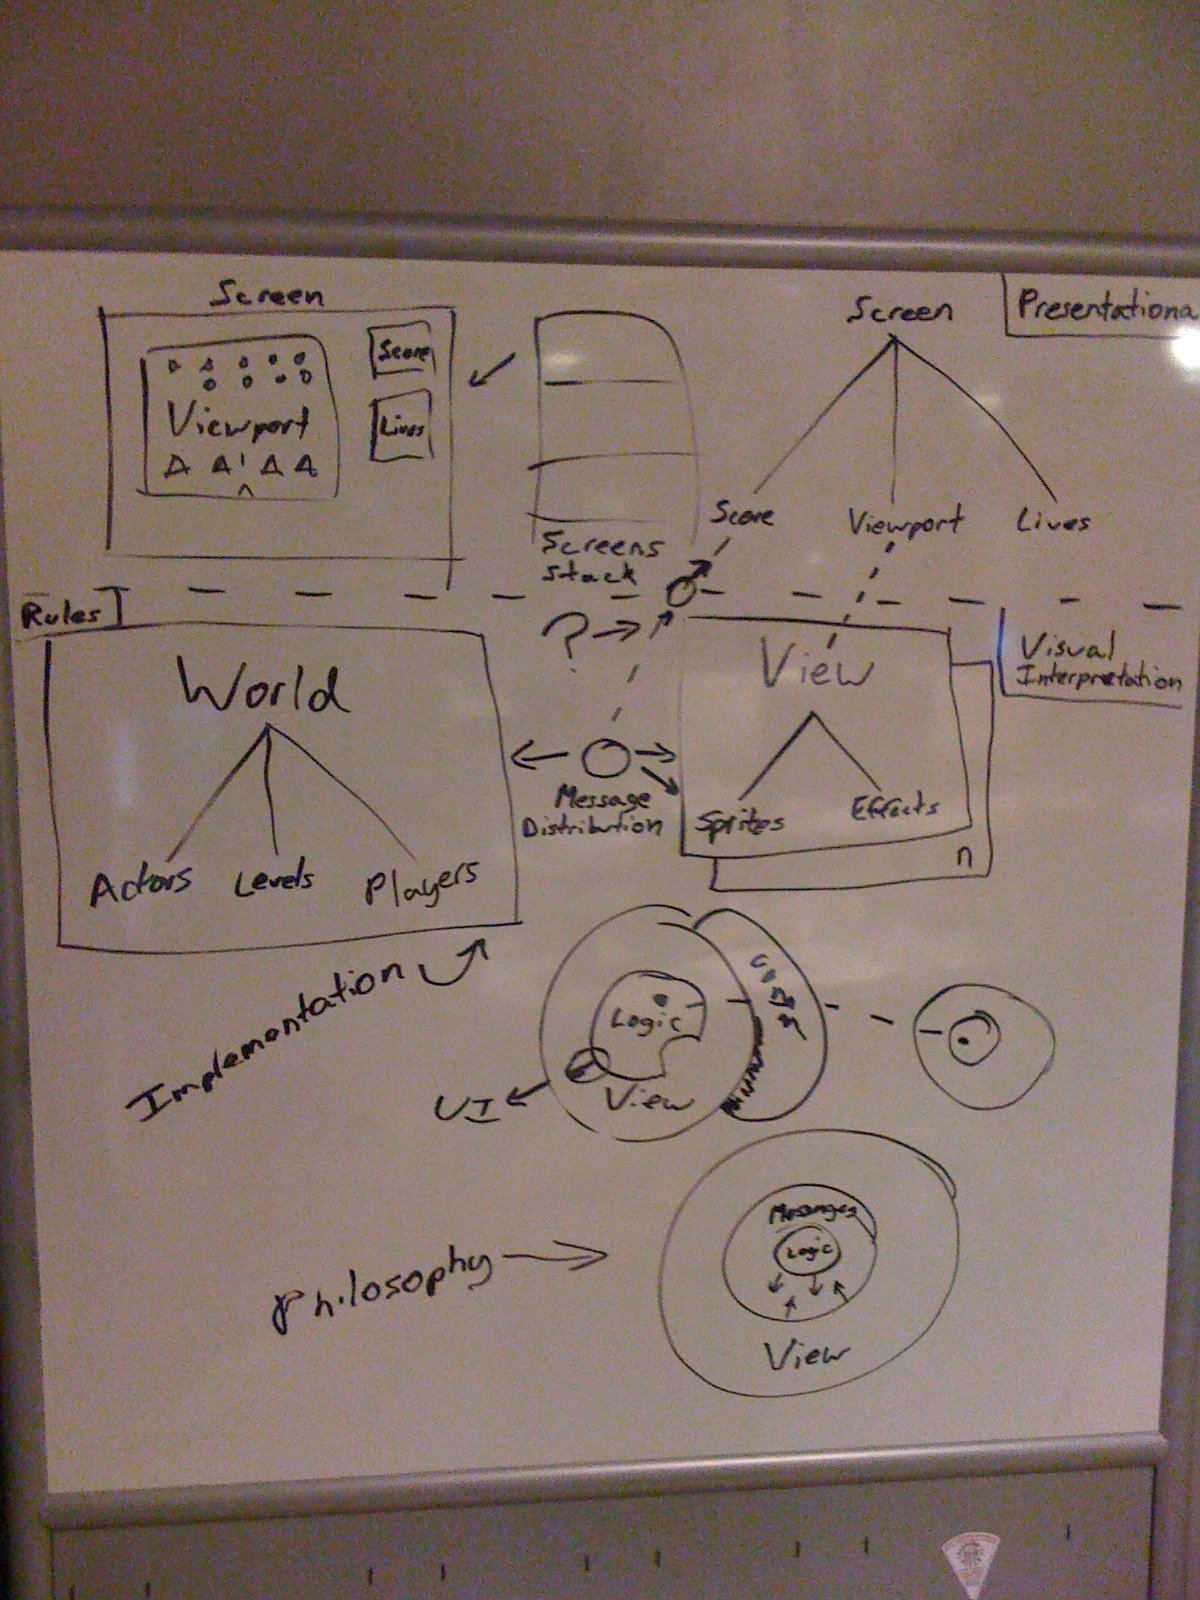 Screen
Score
Viewport
Lives
Screens
Stack
Screen
Presentationa
Score
Viewport
Lives
Rules
?
World
Actors
Levels
Players
Message
Distribution
View
Sprites
Effects
n
Visual
Interpretation
Implementation
Logic
View
UI
Philosophy
Messages
Logic
View